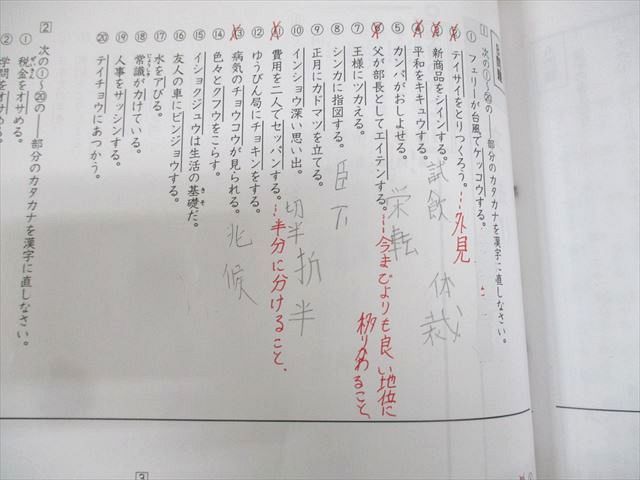 B問題
1 次の①〜⑳の――部分のカタカナを漢字に直しなさい。
① フェリーが台風でケッコウする。
② テイサイをとりつくろう。…外見 体裁
③ 新商品をシインする。試飲
④ 平和をキキュウする。
⑤ カンパがおしよせる。
⑥ 父が部長としてエイテンする。…今までよりも良い地位に 栄転
移りかわること
⑦ 王様にツカえる。
⑧ シンカに指図する。臣下
⑨ 正月にカドマツを立てる。
⑩ インショウ深い思い出。
⑪ 費用を二人でセッパンする。…半分に分けること、 切半 折半
⑫ ゆうびん局にチョキンをする。
⑬ 病気のチョウコウが見られる。兆候
⑭ 色々とクフウをこらす。
⑮ イショクジュウは生活の基礎だ。
きそ
⑯ 友人の車にビンジョウする。
⑰ 水をアびる。
⑱ 常識がカけている。
じょうしき
⑲ 人事をサッシンする。
⑳ テイチョウにあつかう。
2 次の①〜⑳の――部分のカタカナを漢字に直しなさい。
① 税金をオサめる。
ぜいきん
② 学問をオサめる。
3